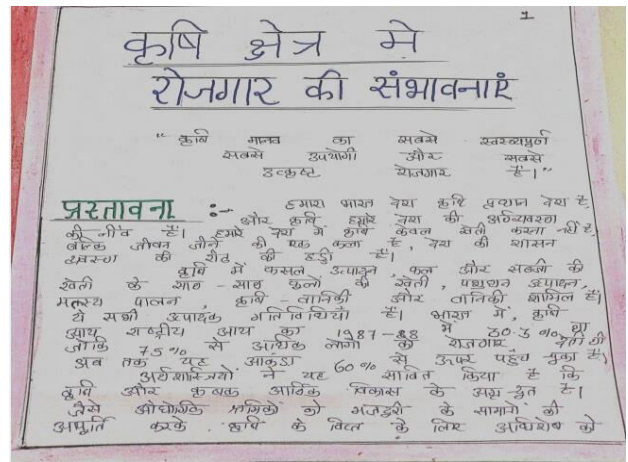 1
कृषि क्षेत्र मे
रोजगार की संभावनाएं
“ कृषि मानव का सबसे स्वस्थ्यपूर्ण
सबसे उपयोगी और सबसे
उत्कृष्ट रोजगार है।”
प्रस्तावना :- हमारा भारत देश कृषि प्रधान देश है,
और कृषि हमारे देश की अर्थव्यवस्था
की नींव है। हमारे देश में कृषि केवल खेती करना नहीं है,
बल्कि जीवन जीने की एक कला है, देश की शासन
व्यवस्था की रीढ की हड्डी है।
कृषि में फसल उत्पादन, फल और सब्जी की
खेती के साथ - साथ फूलों की खेती, पशुधन उत्पादन,
मत्स्य पालन, कृषि - वानिकी और वानिकी शामिल हैं।
ये सभी उत्पादक गतिविधियां हैं। भारत में, कृषि
आय राष्ट्रीय आय का 1987-88 में 30.3 % था
जोकि 75 % से अधिक लोगों को रोजगार देती थी
अब तक यह आंकडा 60 % से ऊपर पहुंच चुका है।
अर्थशास्त्रियों ने यह साबित किया है कि
कृषि और कृषक आर्थिक विकास के अग्र-दूत है।
जैसे औधोगिक श्रमिकों को मजदूरी के सामानों की
आपूर्ति करके, कृषि के वित्त के लिए अधिशेष को